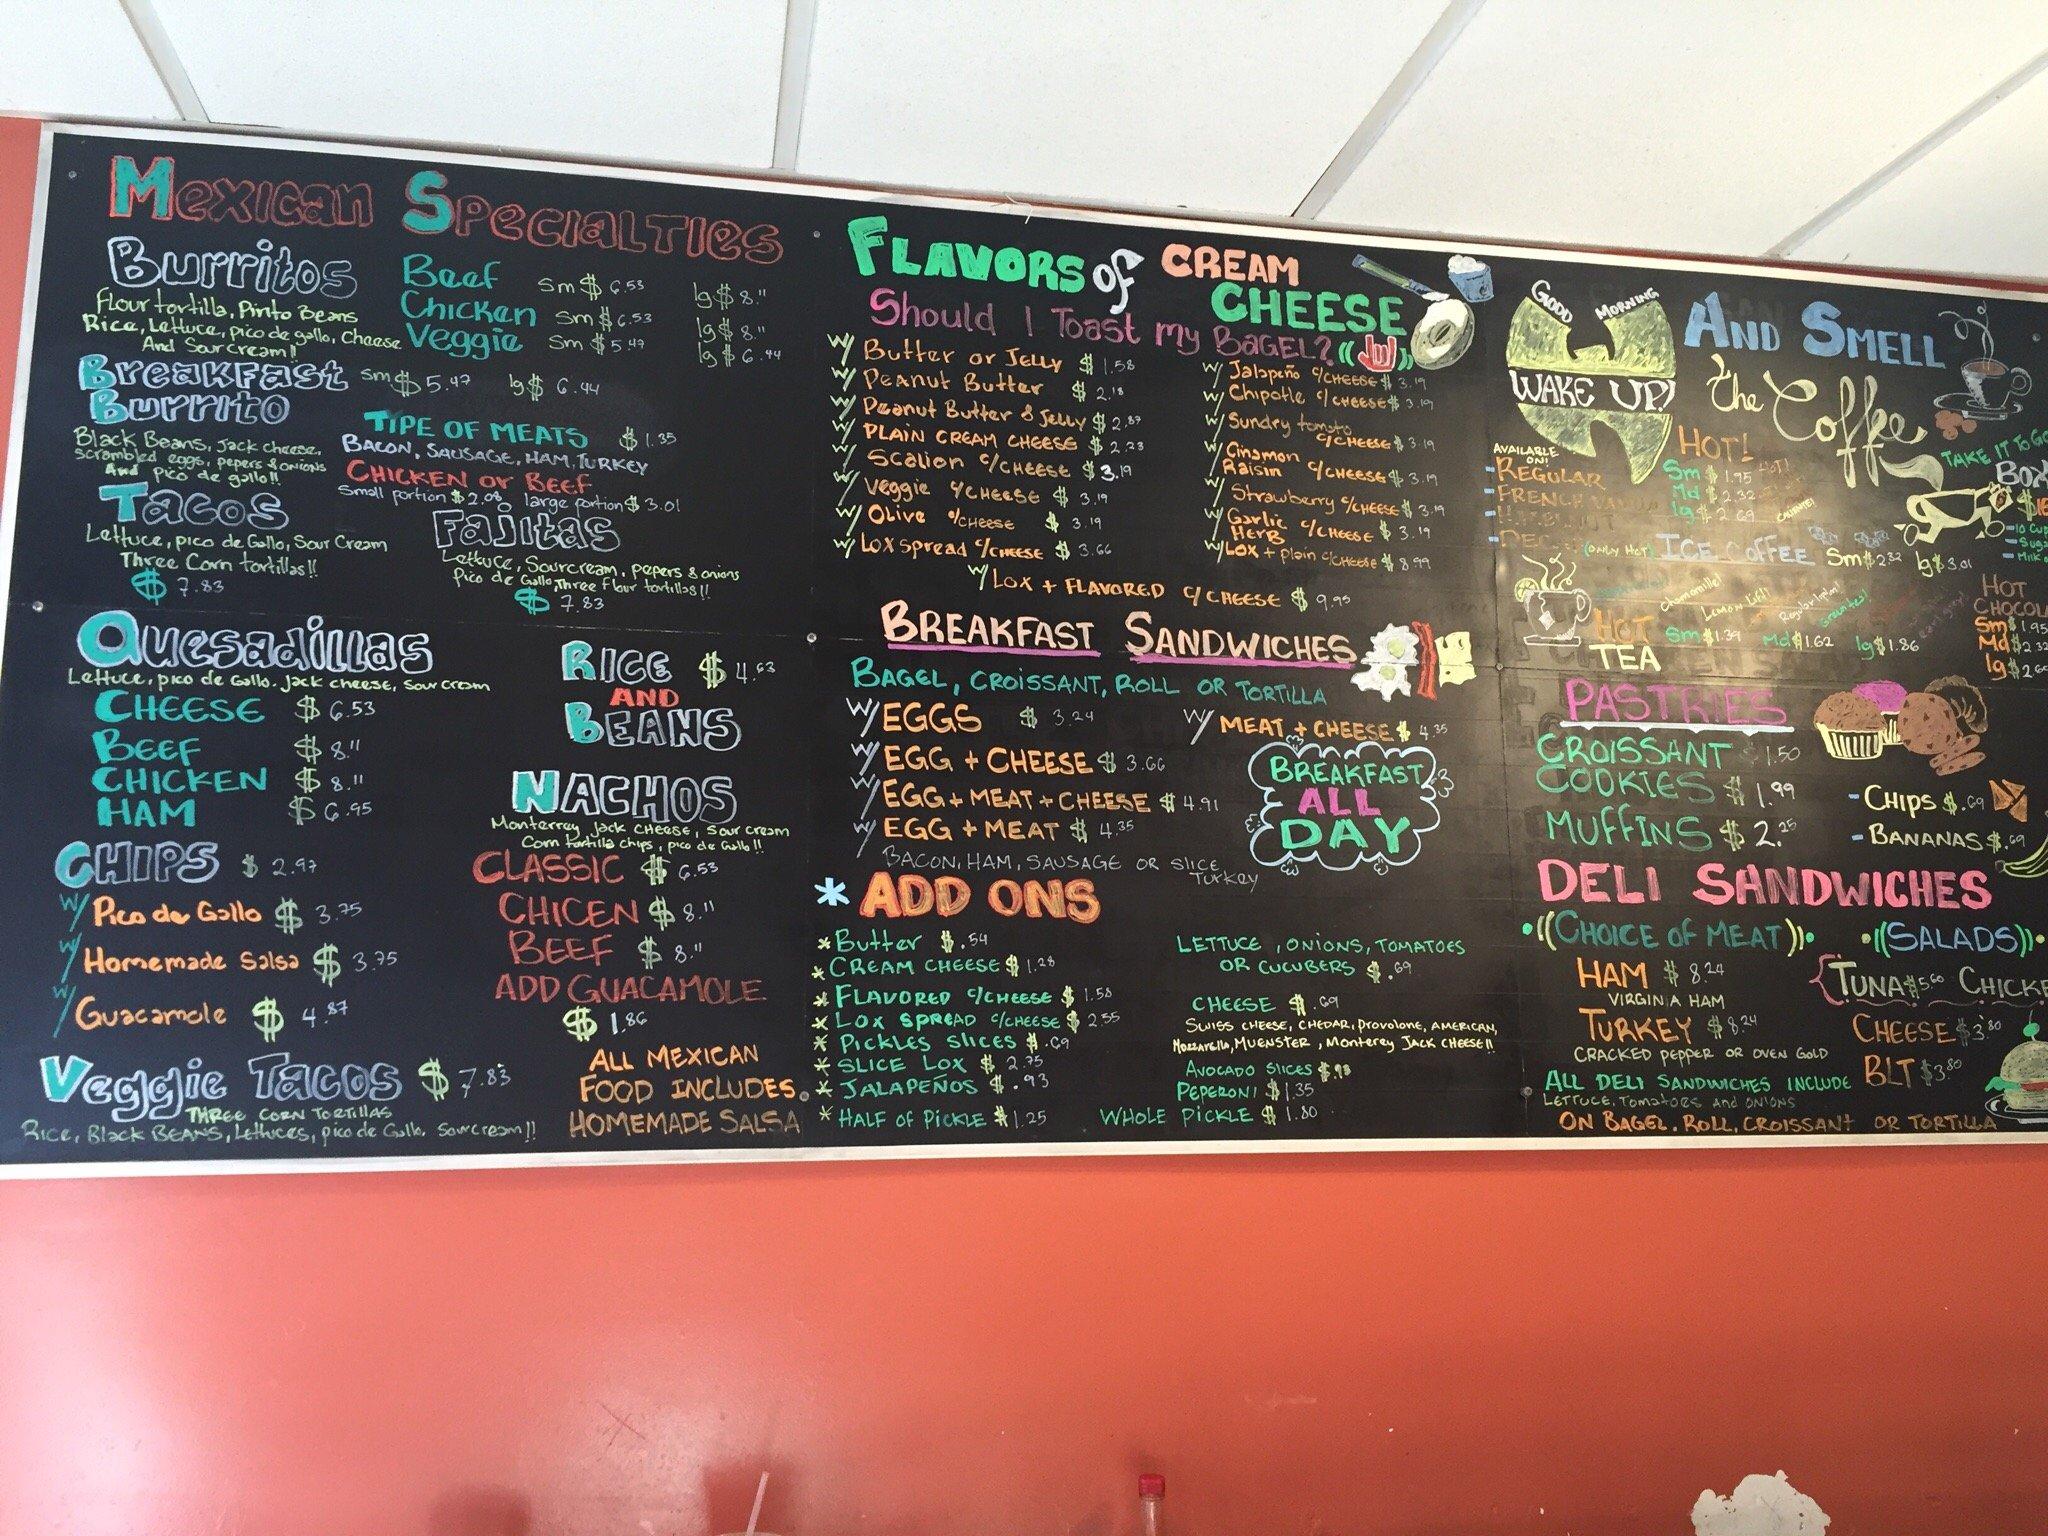 Mexican Specialties
Burritos
Flour tortilla, Pinto Beans
Rice, Lettuce, pico de gallo, Cheese
And Sour Cream!!
Beef sm $ 6.53 lg $ 8.11
Chicken sm $ 6.53 lg $ 8.11
Veggie sm $ 5.47 lg $ 6.44
Breakfast sm $ 5.47 lg $ 6.44
Burrito
Black Beans, Jack cheese,
scrambled eggs, pepers & onions
And pico de gallo!!
TIPE OF MEATS $ 1.35
BACON, SAUSAGE, HAM, TURKEY
CHICKEN OR BEEF
Small portion $ 2.08 large portion $ 3.01
Tacos
Lettuce, pico de Gallo, Sour Cream
Three Corn tortillas!!
$ 7.83
Fajitas
Lettuce, Sourcream, pepers & onions
Pico de Gallo, Three flour tortillas!!
$ 7.83
Quesadillas
Lettuce, pico de Gallo. Jack cheese, Sour cream
CHEESE $ 6.53
BEEF $ 8.11
CHICKEN $ 8.11
HAM $ 6.95
RICE $ 4.63
AND
BEANS
CHIPS $ 2.97
w/ Pico de Gallo $ 3.75
w/ Homemade Salsa $ 3.75
w/ Guacamole $ 4.87
NACHOS
Monterrey Jack cheese, Sour cream
Corn tortilla chips, pico de Gallo!!
CLASSIC $ 6.53
CHICEN $ 8.11
BEEF $ 8.11
ADD GUACAMOLE
$ 1.86
Veggie Tacos $ 7.83
THREE CORN TORTILLAS
Rice, Black BEANS, Lettuces, pico de Gallo, Sourcream!!
ALL MEXICAN
FOOD INCLUDES
HOMEMADE SALSA
FLAVORS of CREAM
CHEESE
Should I Toast my BAGEL?
w/ Butter or Jelly $ 1.58
w/ Peanut Butter $ 2.18
w/ Peanut Butter & Jelly $ 2.87
w/ PLAIN CREAM CHEESE $ 2.23
w/ Scalion c/CHEESE $ 3.19
w/ Veggie c/CHEESE $ 3.19
w/ Olive c/CHEESE $ 3.19
w/ Lox spread c/CHEESE $ 3.66
w/ Jalapeño c/CHEESE $ 3.19
w/ Chipotle c/CHEESE $ 3.19
w/ Sundry tomato
c/CHEESE $ 3.19
w/ Cinamon
Raisin c/CHEESE $ 3.19
w/ Strawberry c/CHEESE $ 3.19
w/ Garlic
Herb c/CHEESE $ 3.19
w/ LOX + plain c/CHEESE $ 8.99
w/ Lox + FLAVORED c/CHEESE $ 9.95
BREAKFAST SANDWICHES
BAGEL, CROISSANT, ROLL OR TORTILLA
w/ EGGS $ 3.24
w/ EGG + CHEESE $ 3.66
w/ EGG + MEAT + CHEESE $ 4.91
w/ EGG + MEAT $ 4.35
w/ MEAT + CHEESE $ 4.35
BACON, HAM, SAUSAGE OR SLICE
TURKEY
BREAKFAST
ALL
DAY
* ADD ONS
* Butter $ .54
* CREAM CHEESE $ 1.28
* FLAVORED c/CHEESE $ 1.58
* LOX SPREAD c/CHEESE $ 2.55
* PICKLES SLICES $ .69
* SLICE LOX $ 2.75
* JALAPEÑOS $ .93
* HALF OF PICKLE $ 1.25
LETTUCE, ONIONS, TOMATOES
OR CUCUBERS $ .69
CHEESE $ .69
SWISS CHEESE, CHEDAR, Provolone, AMERICAN,
MOZZARELLA, MUENSTER, Monterey JACK CHEESE!!
AVOCADO SLICES $ .93
PEPERONI $ 1.35
WHOLE PICKLE $ 1.80
GOOD MORNING
WAKE UP!
AND SMELL
the Coffee
AVAILABLE
ON!
- REGULAR
- FRENCH
HOT!
Sm $ 1.95
Md $ 2.32
lg $ 2.69
TAKE IT TO GO
BOX
- 10 Cup
- Suga
- Milk
(ONLY HOT) ICE COFFEE Sm $ 2.32 lg $ 3.01
HOT
TEA
Chamomile!
Sm $ 1.39 Md $ 1.62 lg $ 1.86
HOT
CHOCOL
Sm $ 1.95
Md $ 2.32
lg $ 2.6
PASTRIES
CROISSANT $ 1.50
COOKIES $ 1.99
MUFFINS $ 2.25
- CHIPS $ .69
- BANANAS $ .69
DELI SANDWICHES
((CHOICE OF MEAT))
HAM $ 8.24
VIRGINIA HAM
TURKEY $ 8.24
CRACKED PEPPER OR OVEN GOLD
((SALADS))
TUNA $ 5.60 CHICKE
CHEESE $ 3.80
BLT $ 3.80
ALL DELI SANDWICHES INCLUDE
LETTUCE, TOMATOES AND ONIONS
ON BAGEL, ROLL, CROISSANT OR TORTILLA